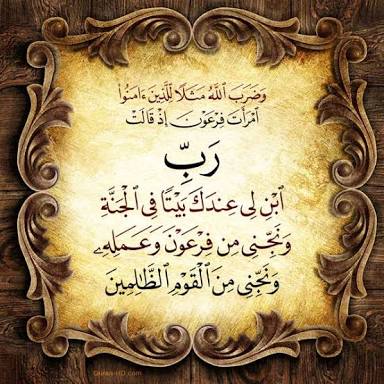 وَضَرَبَ ٱللَّهُ مَثَلًا لِّلَّذِينَ ءَامَنُوا۟
ٱمْرَأَتَ فِرْعَوْنَ إِذْ قَالَتْ
رَبِّ
ٱبْنِ لِى عِندَكَ بَيْتًا فِى ٱلْجَنَّةِ
وَنَجِّنِى مِن فِرْعَوْنَ وَعَمَلِهِۦ
وَنَجِّنِى مِنَ ٱلْقَوْمِ ٱلظَّٰلِمِينَ
Quran-HD.com